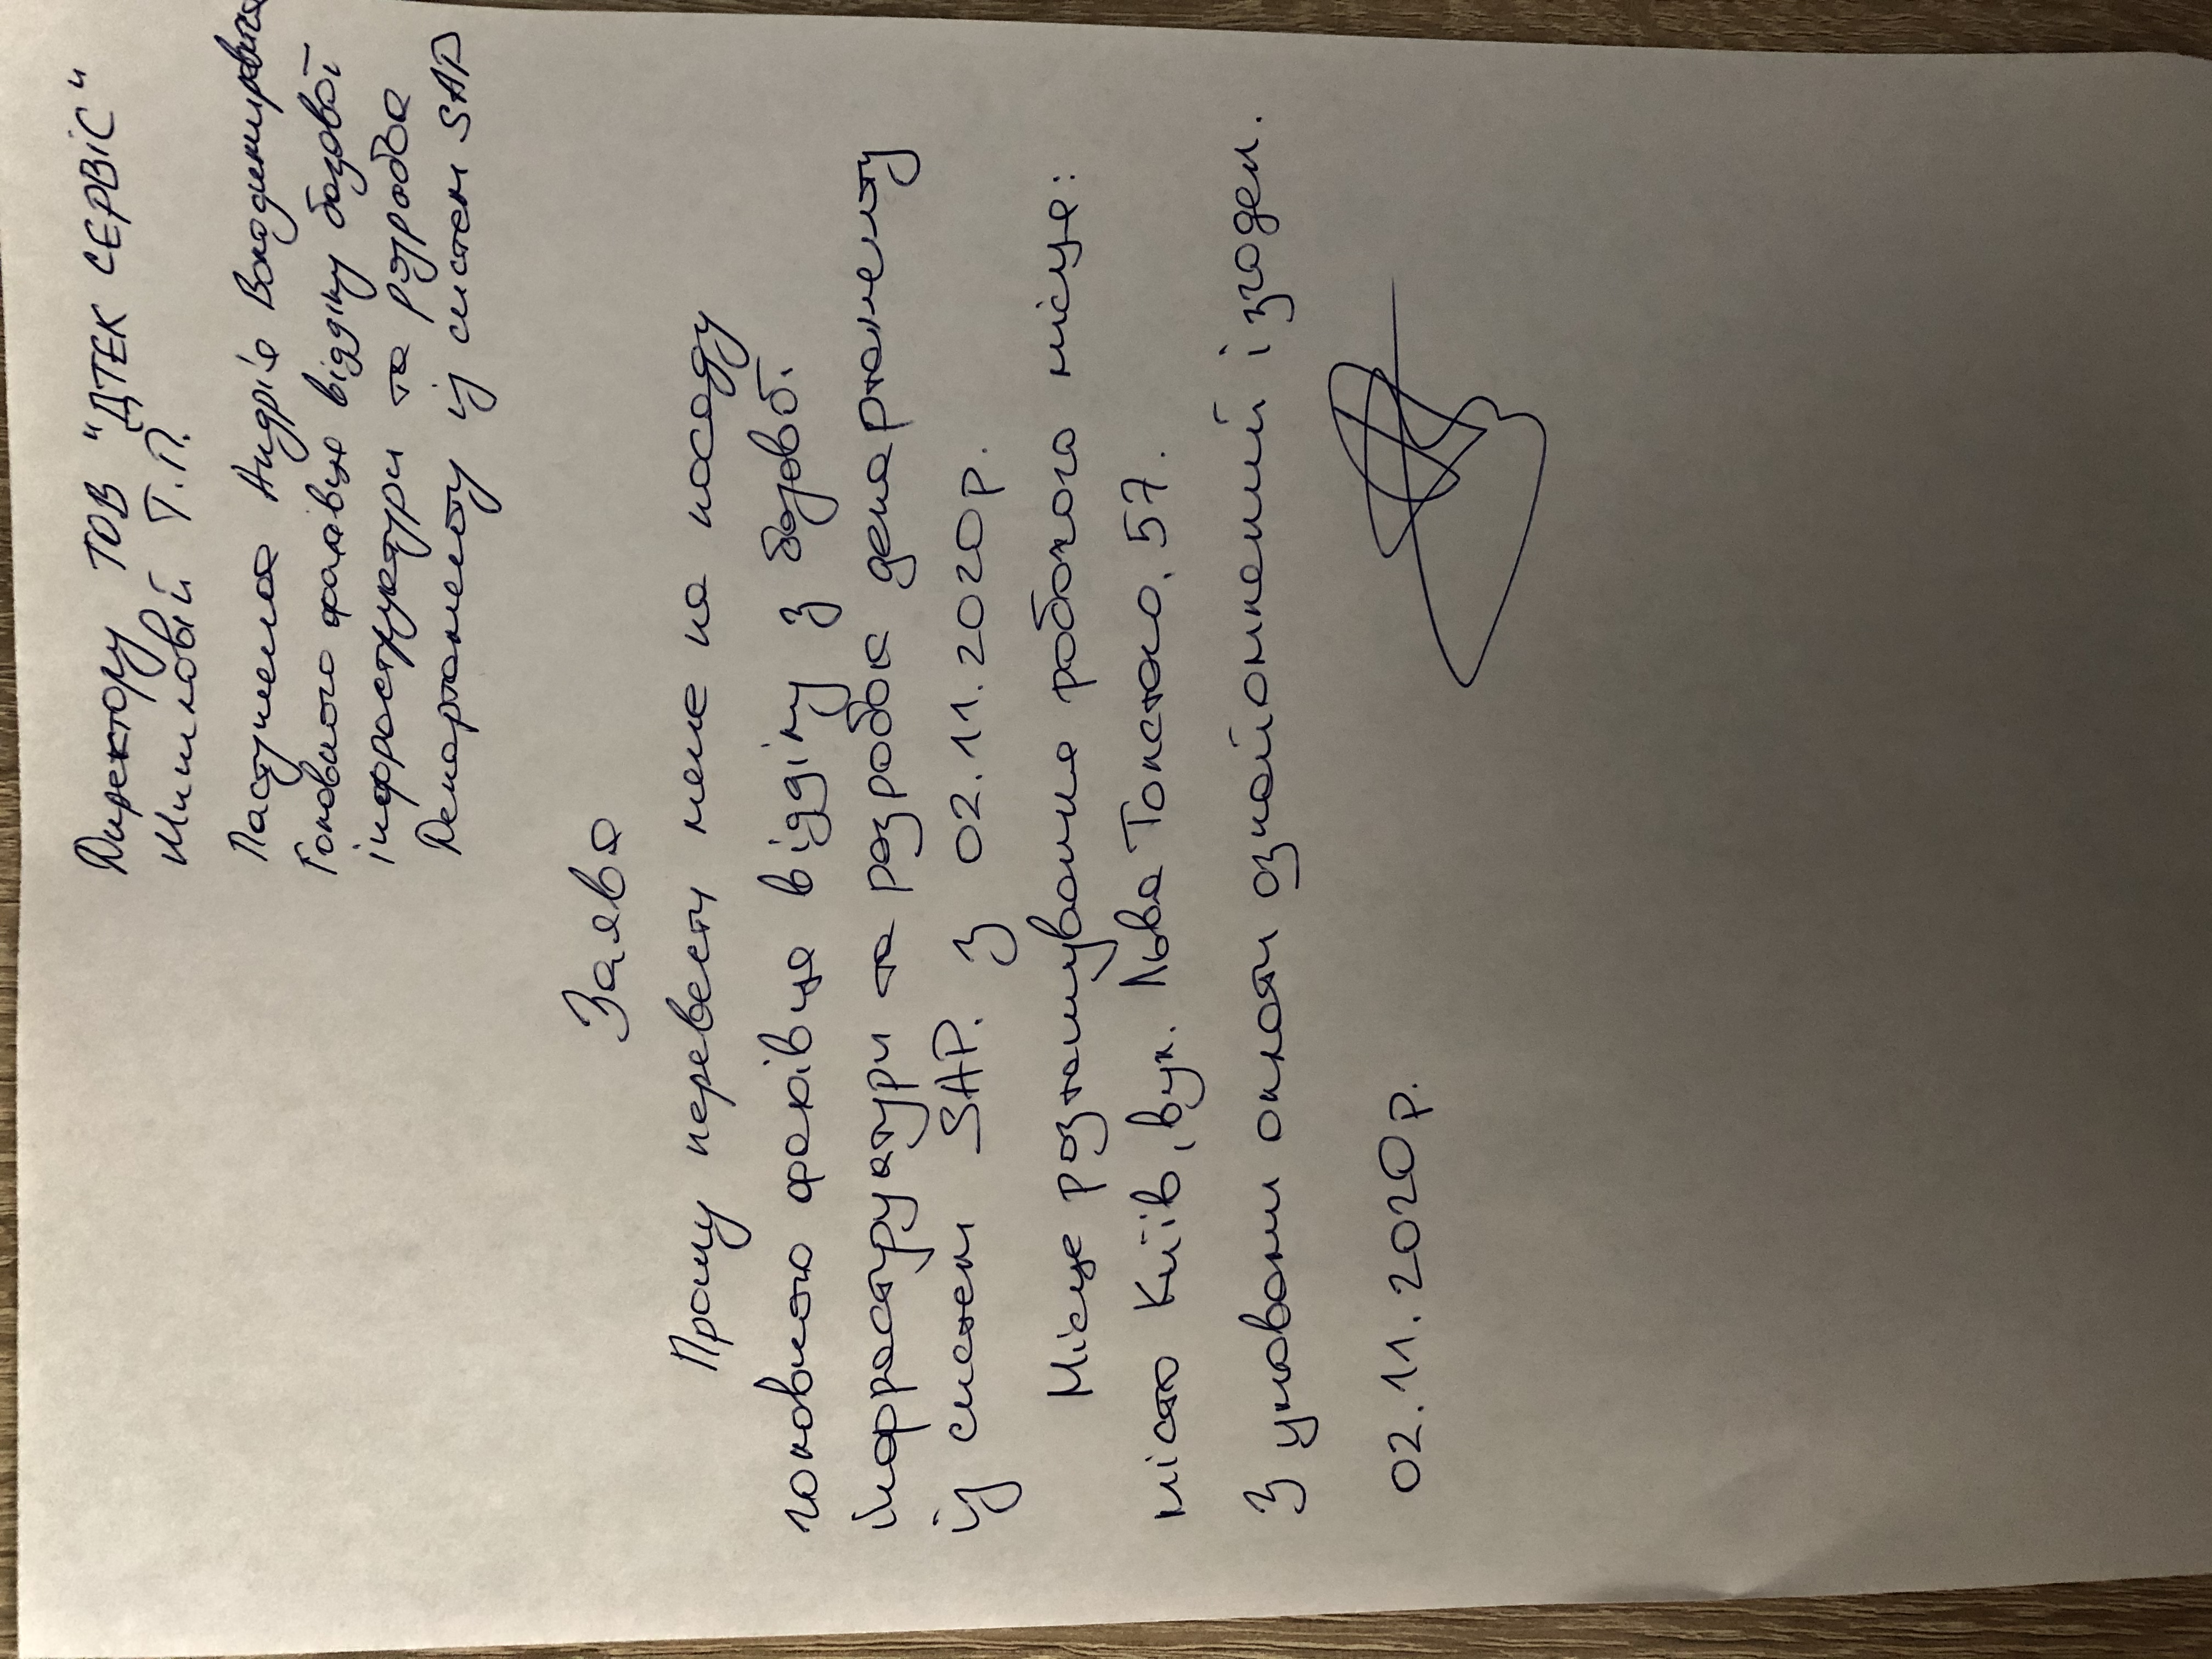 Директору ТОВ "ДТЕК СЕРВІС"
Шишковій Т.П.
Пастушенка Андрія Володимировича
Головного фахівця відділу базової
інфраструктури та розробок
Департаменту із систем SAP
Заява
Прошу перевести мене на посаду
головного фахівця відділу з базової
інфраструктури та розробок департаменту
із систем SAP. З 02.11.2020р.
Місце розташування робочого місця:
місто Київ, вул. Льва Толстого, 57.
З умовами оплати ознайомлений і згоден.
02.11.2020р.